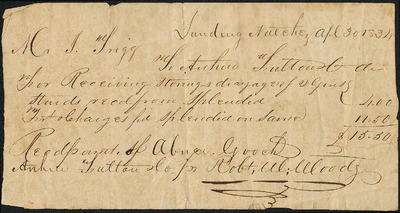 Landing Natchez Apl 30 1834
Mr J. Trigg
To Arthur Sutton & Co dr
For Receiving Storing & drayage of 2 Gins
Stands recd from Splendid 4.00
For Charges pd Splendid on Same 11.50
$ 15.50
Recd payt of Abner Gooch
Arthur Sutton & Co pr Robt. W. Woods